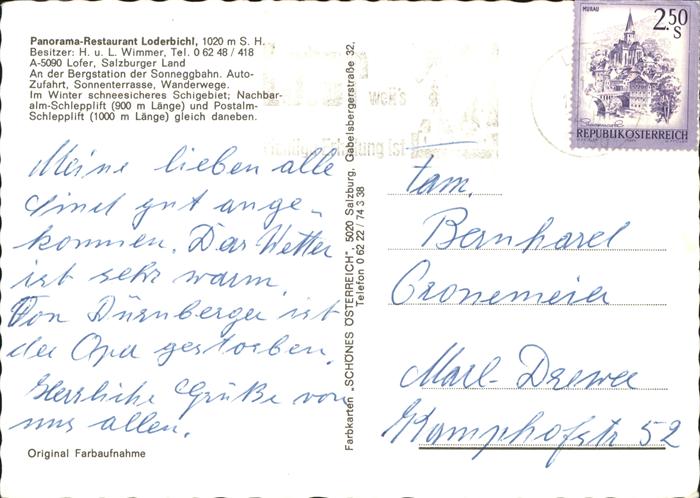 Panorama-Restaurant Loderbichl, 1020 m S. H.
Besitzer: H. u. L. Wimmer, Tel. 0 62 48 / 418
A-5090 Lofer, Salzburger Land
An der Bergstation der Sonneggbahn. Auto-
Zufahrt, Sonnenterrasse, Wanderwege.
Im Winter schneesicheres Schigebiet; Nachbar-
alm-Schlepplift (900 m Länge) und Postalm-
Schlepplift (1000 m Länge) gleich daneben.
Meine lieben alle
sind gut ange-
kommen. Das Wetter
ist sehr warm.
Von Dürnberger ist
der Opa gestorben.
Herzliche Grüße von
uns allen.
Original Farbaufnahme
Farbkarten „SCHÖNES ÖSTERREICH", 5020 Salzburg, Gabelsbergerstraße 32,
Telefon 0 62 22 / 74 3 38
MURAU
2.50
S
REPUBLIK ÖSTERREICH
Fam.
Bernhard
Cronemeier
Marl-Drewer
Kamphofstr 52